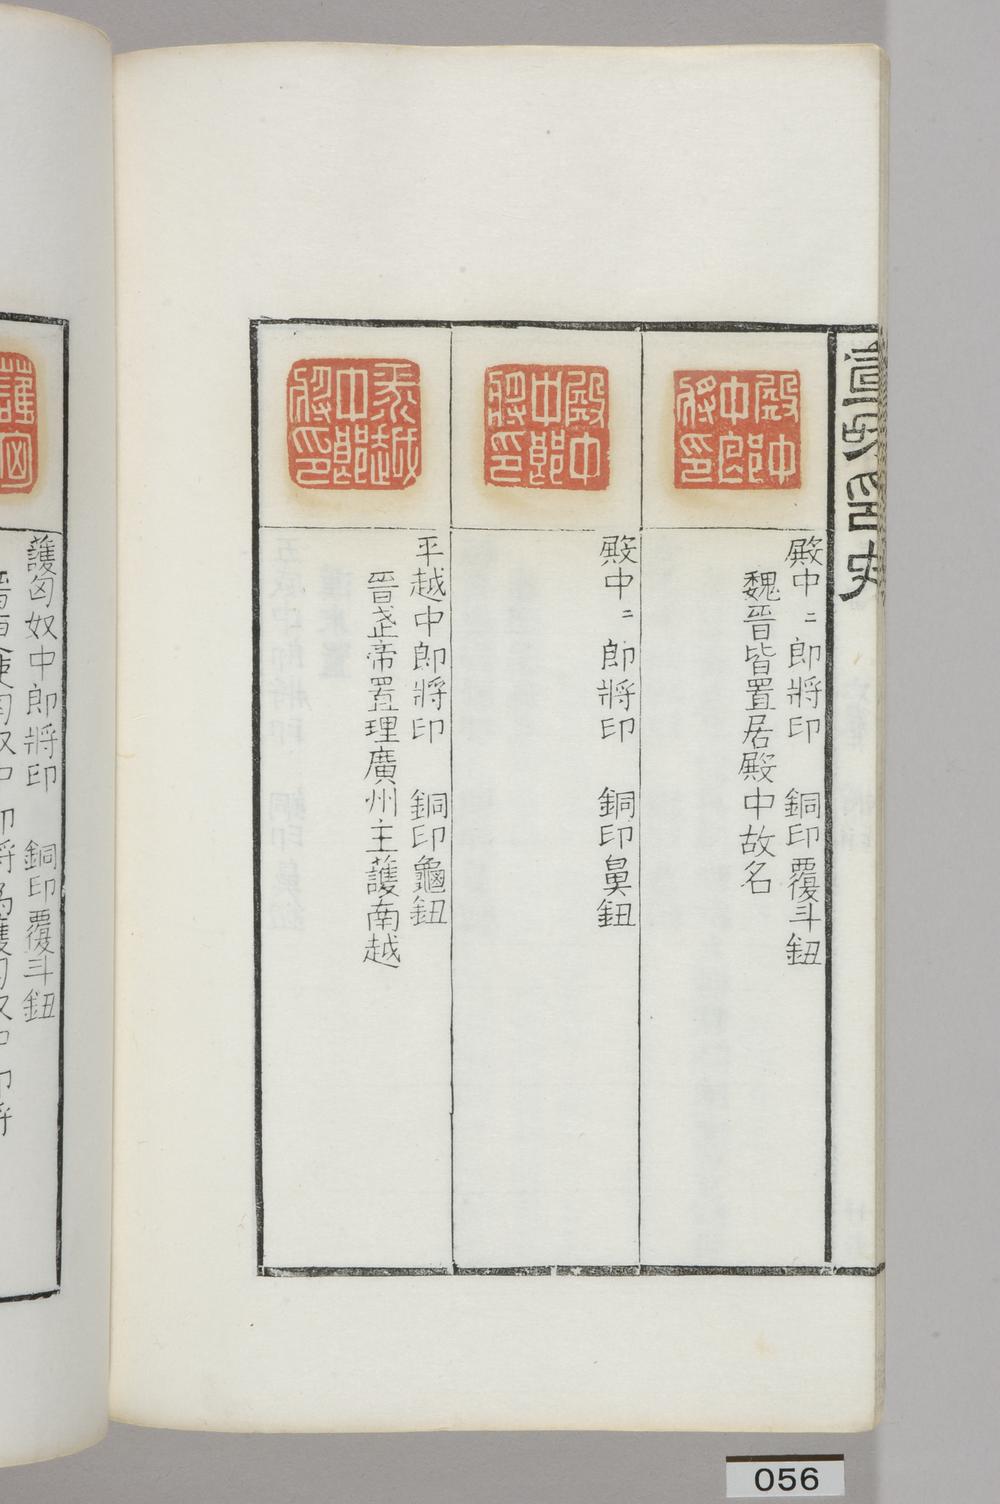 宣和印史
殿中
中郎
將印
殿中〻郎將印 銅印覆斗鈕
魏晉皆置居殿中故名
殿中
中郎
將印
殿中〻郎將印 銅印鼻鈕
平越
中郎
將印
平越中郎將印 銅印龜鈕
晉武帝置理廣州主護南越
護匈
護匈奴中郎將印 銅印覆斗鈕
056